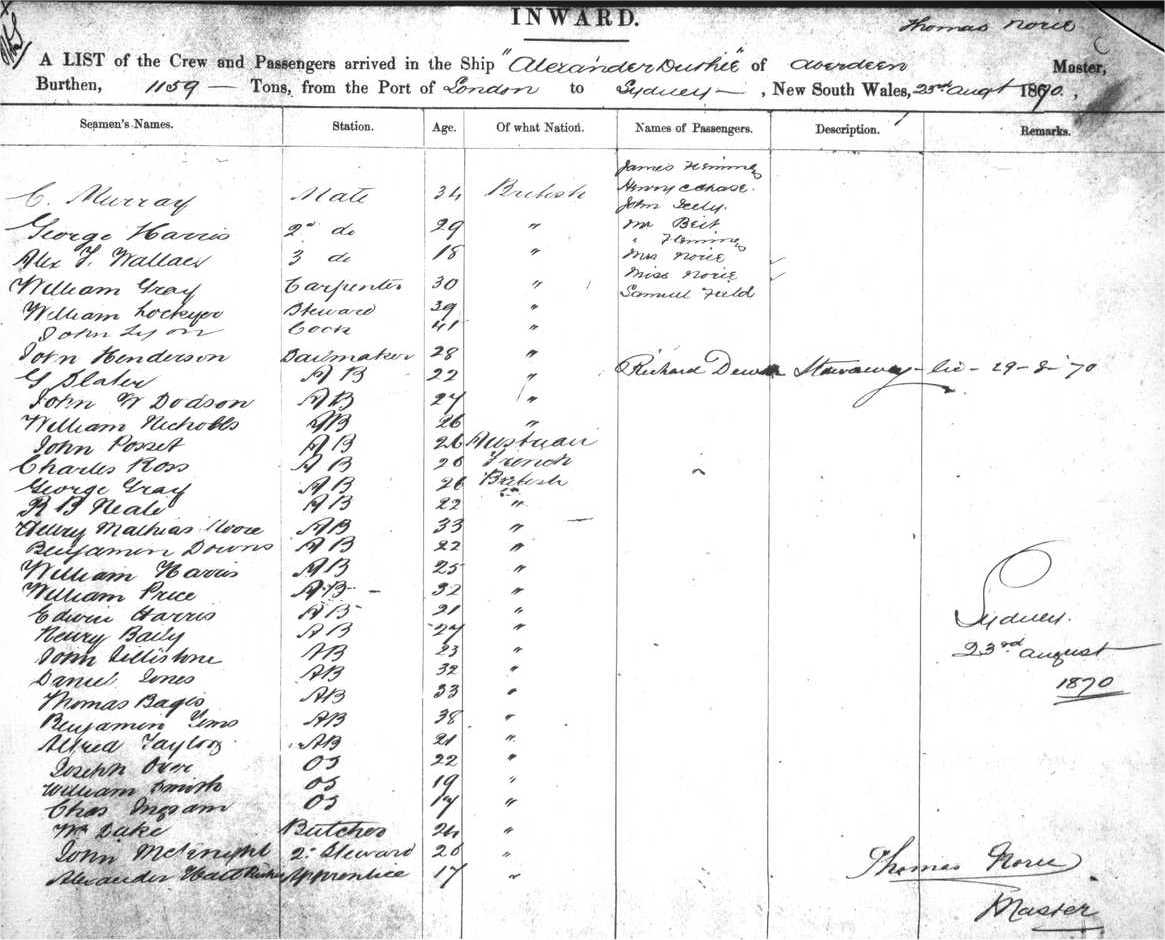 INWARD.
Thomas Norie
A LIST of the Crew and Passengers arrived in the Ship "Alexander Duthie" of Aberdeen Master,
Burthen, 1159 — Tons, from the Port of London to Sydney —, New South Wales, 23rd Augt 1870.,
Seamen's Names. Station. Age. Of what Nation. Names of Passengers. Description. Remarks.
James Flemming
C. Murray Mate 34 British Henry C Chase.
John Seely.
George Harris 2d do 29 " Mr Beit
" Flemming
Alex F. Wallace 3 do 18 " Mrs Norie
Miss Norie
William Gray Carpenter 30 " Samuel Field
William Lockyer Steward 39 "
John Lyon Cook 41 "
John Henderson Sailmaker 28 "
G Slater AB 22 " Richard Stowaway - lie - 29-8-70
John W Dodson AB 27 "
William Nicholls AB 26 "
John Posset AB 26 Austrian
Charles Ross AB 26 French
George Gray AB 26 British
R B Neale AB 22 "
Henry Mathias Moore AB 33 "
Benjamin Downs AB 22 "
William Harris AB 25 "
William Price AB - 32 "
Edwin Harris AB 21 "
Henry Baily AB 27 "
John AB 23 "
Daniel Jones AB 32 "
Thomas AB 33 "
Benjamin AB 38 "
Alfred Taylor AB 21 "
Joseph Over OS 22 "
William Smith OS 19 "
Chas Ingram OS 17 "
Wm Dake Butcher 24 "
John McKnight 2d Steward 26 "
Alexander Apprentice 17 "
Sydney.
23rd August
1870
Thomas Norie
Master